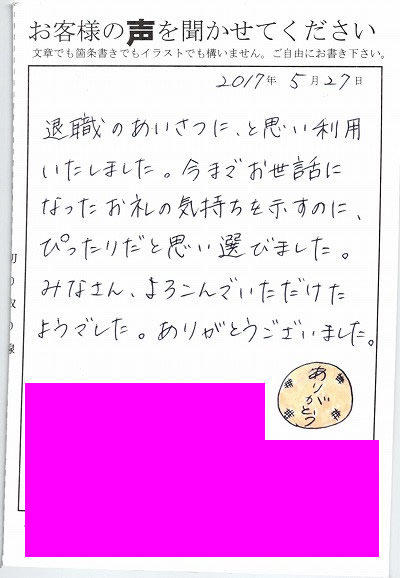 お客様の声を聞かせてください
文章でも箇条書きでもイラストでも構いません。ご自由にお書き下さい。
2017年 5月27日
退職のあいさつに、と思い利用
いたしました。今までお世話に
なったお礼の気持ちを示すのに、
ぴったりだと思い選びました。
みなさん、よろこんでいただけた
ようでした。ありがとうございました。
ありがとう
切り取り線